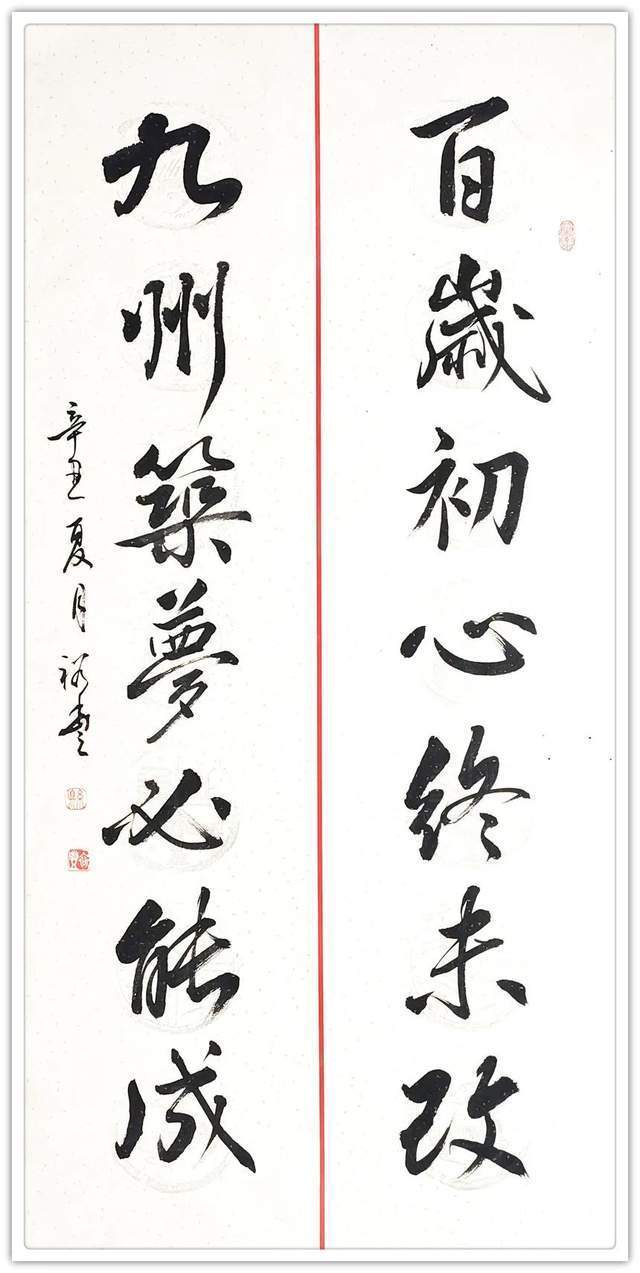 百歲初心終未改
九州築夢必能成
辛丑夏月裕